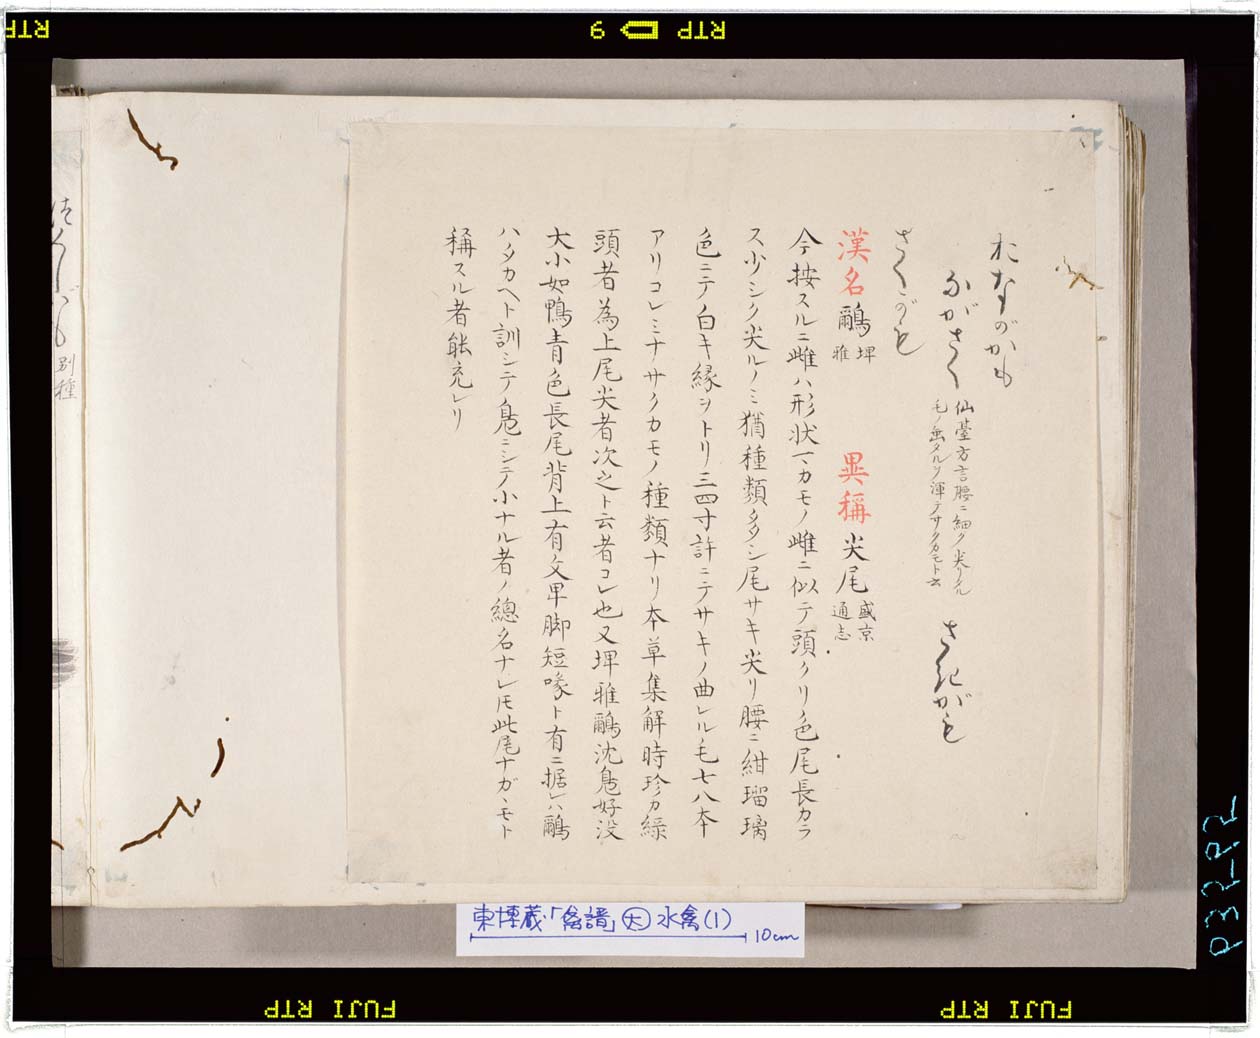 RTP
6
RTP
おながかも
ながさく 仙臺方言腰ニ細ク尖リタル
毛ノ無タルヲ渾テサクカモト云 さきがも
さくがも
漢名 鸍 埤雅 異稱 尖尾 盛京通志
今按スルニ雌ハ形状マカモノ雌ニ似テ頭クリ色尾長カラ
ス少シク尖ルノミ猶種類多シ尾サキ尖リ腰ニ紺瑠璃
色ニテ白キ縁ヲトリ三四寸許ニテサキノ曲レル毛七八本
アリコレミナサクカモノ種類ナリ本草集解時珍カ緑
頭者為上尾尖者次之ト云者コレ也又埤雅鸍沈鳬好没
大小如鴨青色長尾背上有文卑脚短喙ト有ニ据レハ鸍
ハタカヘト訓シテ鳬ニシテ小ナル者ノ總名ナレ𪜈此尾ナガヽモト
稱スル者能充レリ
別種
東博蔵「禽譜」大 水禽(1)
10cm
P32-R2
FUJI RTP
FUJI RTP